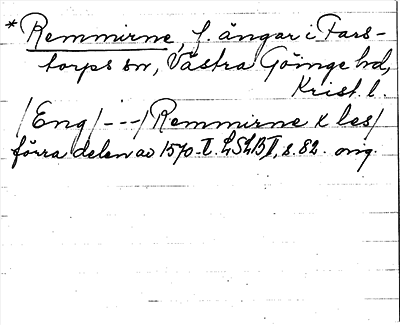 * Remmirne, f. ängar i Fars-
torps sn, Västra Göinge hd,
Krist. l.
/Eng/ --- /Remmirne x les/
förra delen av 1570-t. LSLBII, s. 82. orig.